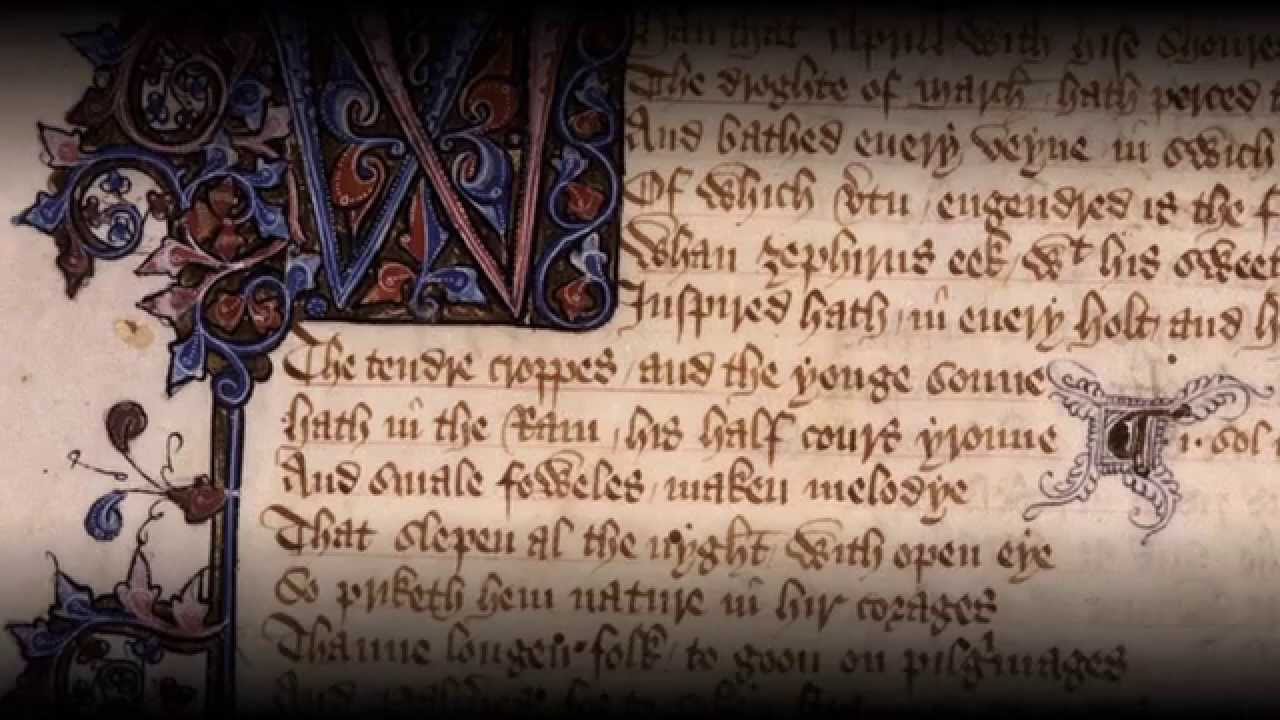 Whan that Aprill with hise shoures
The droghte of march / hath perced t
And bathed euery veyne in swich
Of which vtu engendred is the f
Whan zephirus eek wt his sweet
Inspired hath in euery holt and h
The tendre croppes / and the yonge sonne
hath in the Ram / his half cours yronne ¶ .i. sol
And smale foweles / maken melodye
That slepen al the nyght with open eye
So priketh hem nature in hir corages
Thanne longen folk / to goon on pilgrimages
And